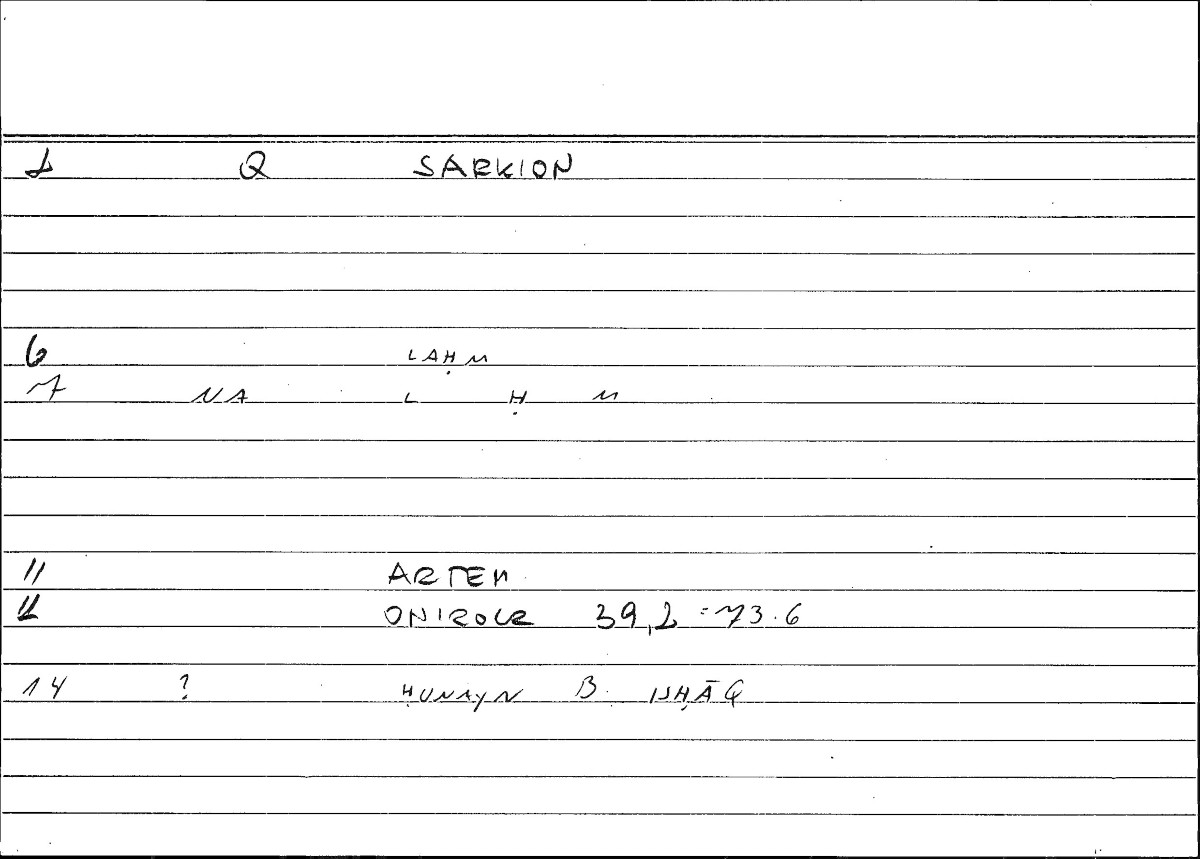 2 Q SARKION
6 LAḤM
7 NA L Ḥ M
11 ARTEM
12 ONIROCR 39,2 = 73.6
14 ? ḤUNAYN B. ISḤĀQ